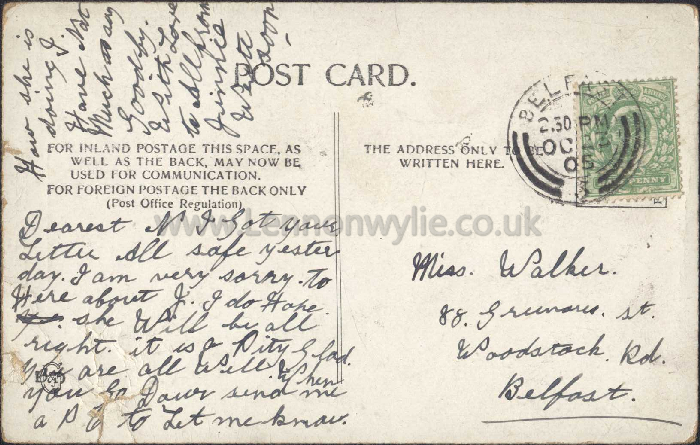 POST CARD.
FOR INLAND POSTAGE THIS SPACE, AS
WELL AS THE BACK, MAY NOW BE
USED FOR COMMUNICATION.
FOR FOREIGN POSTAGE THE BACK ONLY
(Post Office Regulation)
THE ADDRESS ONLY TO BE
WRITTEN HERE.
BELFAST
2.30 PM
OC
05
3
www.Lennonwylie.co.uk
Dearest N I Got your
Letter All safe yester
day. I am very sorry to
Here about J. I do Hope
she Will be all
right. it is a Pity Glad
You are all Well When
you Go Down send me
a P C to Let me know.
How she is
doing I
Have Not
Much
Goodby.
With Love
to All from
Write soon
Miss. Walker.
88. St.
Woodstock Rd.
Belfast.